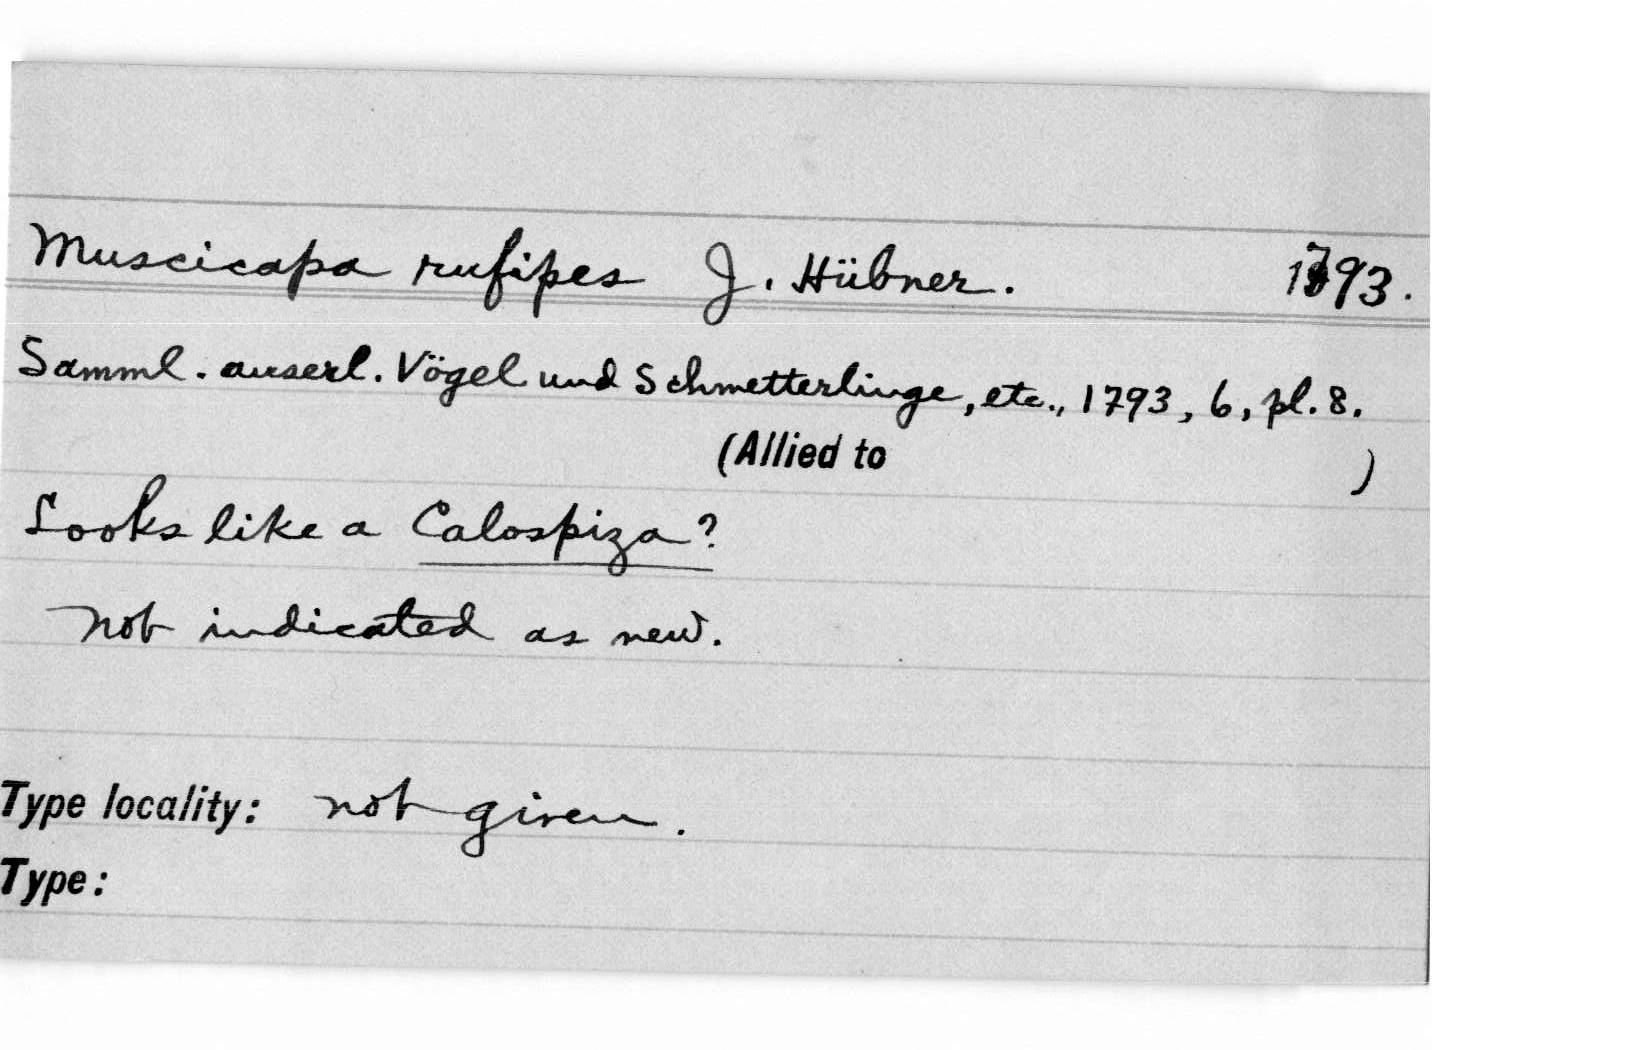 Muscicapa rufipes J. Hübner. 1793.
Samml. auserl. Vögel und Schmetterlinge, etc., 1793, 6, pl. 8.
(Allied to )
Looks like a Calospiza?
Not indicated as new.
Type locality: not given.
Type: